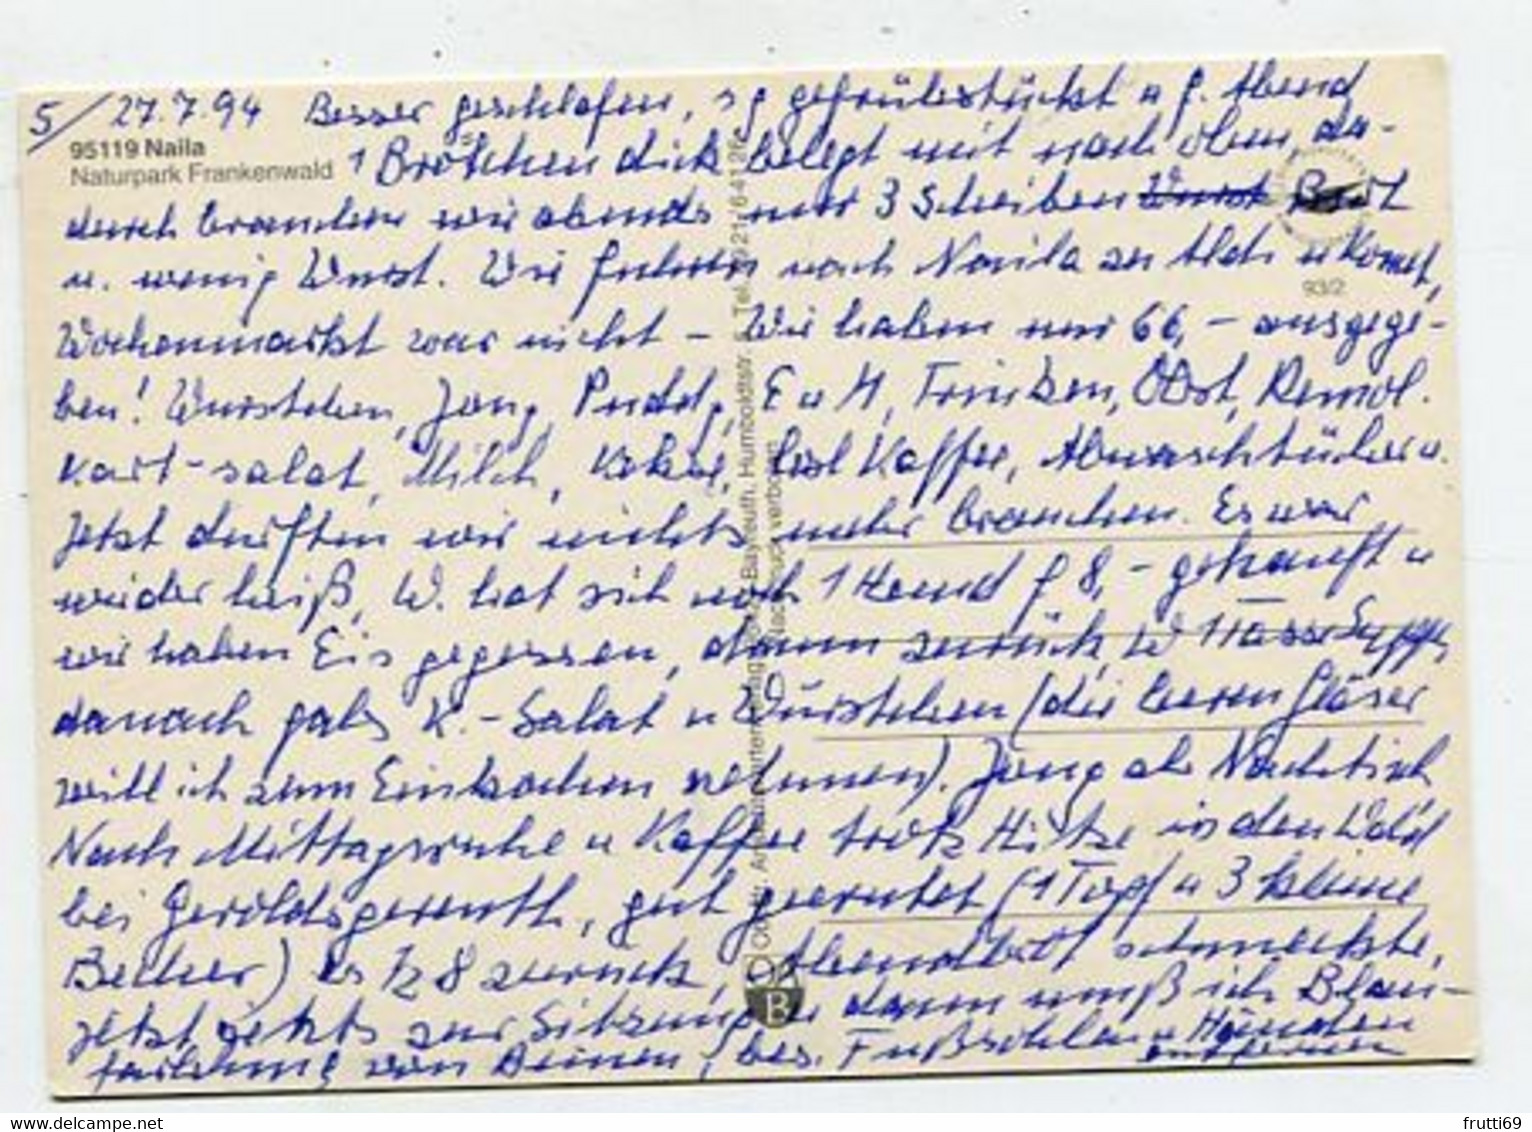 5/ 27.7.94 Besser geschlafen, gefrühstückt u f. Abend
95119 Naila
Naturpark Frankenwald
1 Brötchen dick belegt mit nach oben, da-
durch brauchen wir abends nur 3 Scheiben Wurst Brot
u. wenig Wurst. Wir fuhren nach Naila zu Aldi u Komet,
93/2
Wochenmarkt war nicht – Wir haben nur 66,– ausgege-
ben! Würstchen, Jog, Pudd, E u M, Trinken, Obst, Remol.
Kart-salat, Milch, Kekse, lösl Kaffee, Abwaschtücher u.
Jetzt dürften wir nichts mehr brauchen. Es war
wieder heiß, W. hat sich noch 1 Hemd f 8,– gekauft u
wir haben Eis gegessen, dann zurück, W 1 Tasse Suppe,
danach gabs K.-Salat u Würstchen (die leeren Gläser
will ich zum Einkochen nehmen). Jog als Nachtisch
Nach Mittagsruhe u Kaffee trotz Hitze in den Wald
bei Geroldsgereuth, gut geerntet (1 Topf u 3 kleine
Becher) bis 1/2 8 zurück, Abendbrot schmeckte,
jetzt zur Sitzung u dann muß ich Blau-
färbung von Beinen, bes. Fußsohlen u Händen
entfernen
Bayreuth, Humboldtstr.
Nachdruck verboten
B
frutti69